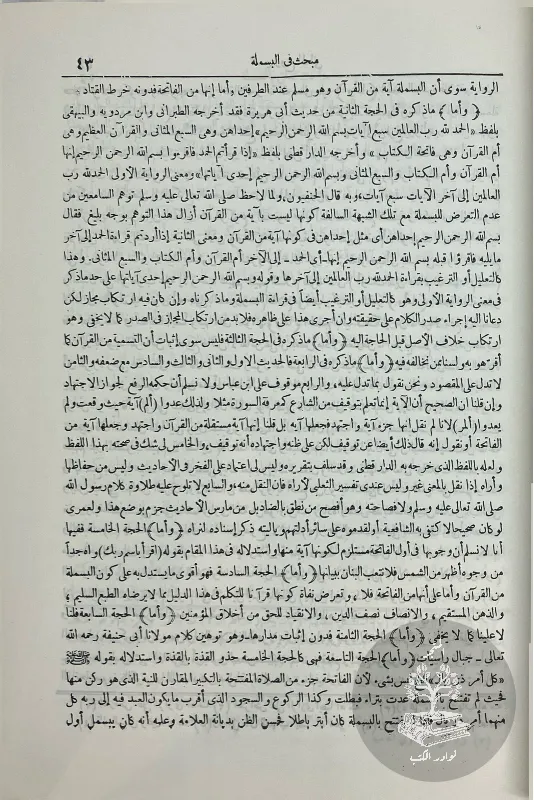 مبحث فى البسملة ٤٣
الرواية سوى أن البسملة آية من القرآن وهو مسلم عند الطرفين وأما إنها من الفاتحة فدونه خرط القتاد .
﴿ وأما ﴾ ماذكره فى الحجة الثانية من حديث أبى هريرة فقد أخرجه الطبرانى وابن مردويه والبيهقى
بلفظ «الحمد لله رب العالمين سبع آيات بسم الله الرحمن الرحيم» إحداهن وهى السبع المثانى والقرآن العظيم وهى
أم القرآن وهى فاتحة الكتاب » وأخرجه الدار قطنى بلفظ «إذا قرأتم الحمد فاقرءوا بسم الله الرحمن الرحيم إنها
أم القرآن وأم الكتاب والسبع المثانى وبسم الله الرحمن الرحيم إحدى آياتها» ومعنى الرواية الاولى الحمدلله رب
العالمين إلى آخر الآيات سبع آيات، وبه قال الحنفيون ولما لاحظ صلى الله تعالى عليه وسلم توهم السامعين من
عدم التعرض للبسملة مع تلك الشبهة السالفة كونها ليست بآية من القرآن أزال هذا التوهم بوجه بليغ فقال
بسم الله الرحمن الرحيم إحداهن أى مثل إحداهن فى كونها آية من القرآن ومعنى الثانية إذا أردتم قراءة الحمد إلى آخر
مايليه فاقرؤا قبله بسم الله الرحمن الرحيم إنها ـ أى الحمد ـ إلى الآخر أم القرآن وأم الكتاب والسبع المثانى. وهذا
كالتعليل أو الترغيب بقراءة الحمدلله رب العالمين إلى آخرها وقوله وبسم الله الرحمن الرحيم إحدى آياتها على حد ماذكر
فى معنى الرواية الأولى وهو كالتعليل أو الترغيب أيضاً فى قراءة البسملة وماذكرناه وإن كان فيه ارتكاب مجاز لكن
دعانا اليه إجراء صدر الكلام على حقيقته وان أجرى هذا على ظاهره فلابد من ارتكاب المجاز فى الصدر كما لا يخفى وهو
ارتكاب خلاف الأصل قبل الحاجة اليه ﴿وأما﴾ ماذكره فى الحجة الثالثة فليس سوى إثبات أن التسمية من القرآن كما
أقر هو به ولسنا ممن نخالفه فيه ﴿وأما﴾ ماذكره فى الرابعة فالحديث الاول والثانى والثالث والسادس مع ضعفه والثامن
لا تدل على المقصود ونحن نقول بما تدل عليه ، والرابع موقوف على ابن عباس ولا نسلم أن حكمه الرفع لجواز الاجتهاد
وإن قلنا ان الصحيح أن الآية إنما تعلم بتوقيف من الشارع كمعرفة السورة مثلا ولذلك عدوا (ألم) آية حيث وقعت ولم
يعدوا (المر) لأنا لم نقل انها جزء آية واجتهد فجعلها آية بل قلنا إنها آية مستقلة من القرآن واجتهد وجعلها آية من
الفاتحة أو نقول إنه قال ذلك أيضا عن توقيف لكن على ظنه واجتهاده أنه توقيف، والخامس لى شك فى صحته بهذا اللفظ
ولعله باللفظ الذى خرجه به الدار قطنى وقد سلف بتقريره وليس لى اعتماد على الفخر فى الأحاديث وليس من حفاظها
وأراه إذا نقل بالمعنى غير وليس عندى تفسير الثعلبى لأراه فان النقل منه، والسابع لا تلوح عليه طلاوة كلام رسول الله
صلى الله تعالى عليه وسلم ولا فصاحته وهو أفصح من نطق بالضاد بل من مارس الأحاديث جزم بوضع هذا ولعمرى
لو كان صحيحا لاكتفى به الشافعية أو لقدموه على سائر أدلتهم وياليته ذكر إسناده لنراه ﴿وأما﴾ الحجة الخامسة ففيها
أنا لا نسلم أن وجوبها فى أول الفاتحة مستلزم لكونها آية منها واستدلاله فى هذا المقام بقوله (اقرأ باسم ربك) واه جداً
من وجوه أظهر من الشمس فلا تتعب البنان ببيانها ﴿وأما﴾ الحجة السادسة فهو أقوى ما يستدل به على كون البسملة
من القرآن وأما على أنها من الفاتحة فلا ، وتعرض نفاة كونها قرآنا للتكلم فى هذا الدليل بما لا يرضاه الطبع السليم ،
والذهن المستقيم ، والانصاف نصف الدين ، والانقياد للحق من أخلاق المؤمنين ﴿وأما﴾ الحجة السابعة فلنا
لا علينا كما لا يخفى ﴿وأما﴾ الحجة الثامنة فدون إثبات مدارها ـ وهو توهين كلام مولانا أبى حنيفة رحمه الله
تعالى ـ جبال راسيات ﴿وأما﴾ الحجة التاسعة فهى كالحجة الخامسة حذو القذة بالقذة واستدلاله بقوله ﷺ
«كل أمر ذى بال» ليس بشى. لأن الفاتحة جزء من الصلاة المفتتحة بالتكبير المقارن للنية الذى هو ركن منها
فحيث لم تفتتح بالبسملة عدت بتراء فبطلت وكذا الركوع والسجود الذى أقرب ما يكون العبد فيه إلى ربه كل
منهما أمر ذو بال فاذا لم يفتتح بالبسملة كان أبتر باطلا فحسن الظن بديانة العلامة وعليه أنه كان يبسمل أول
نوادر الكتب